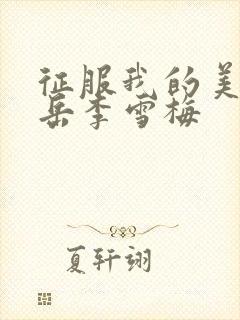 征服我的美
岳李雪梅
夏轩翊